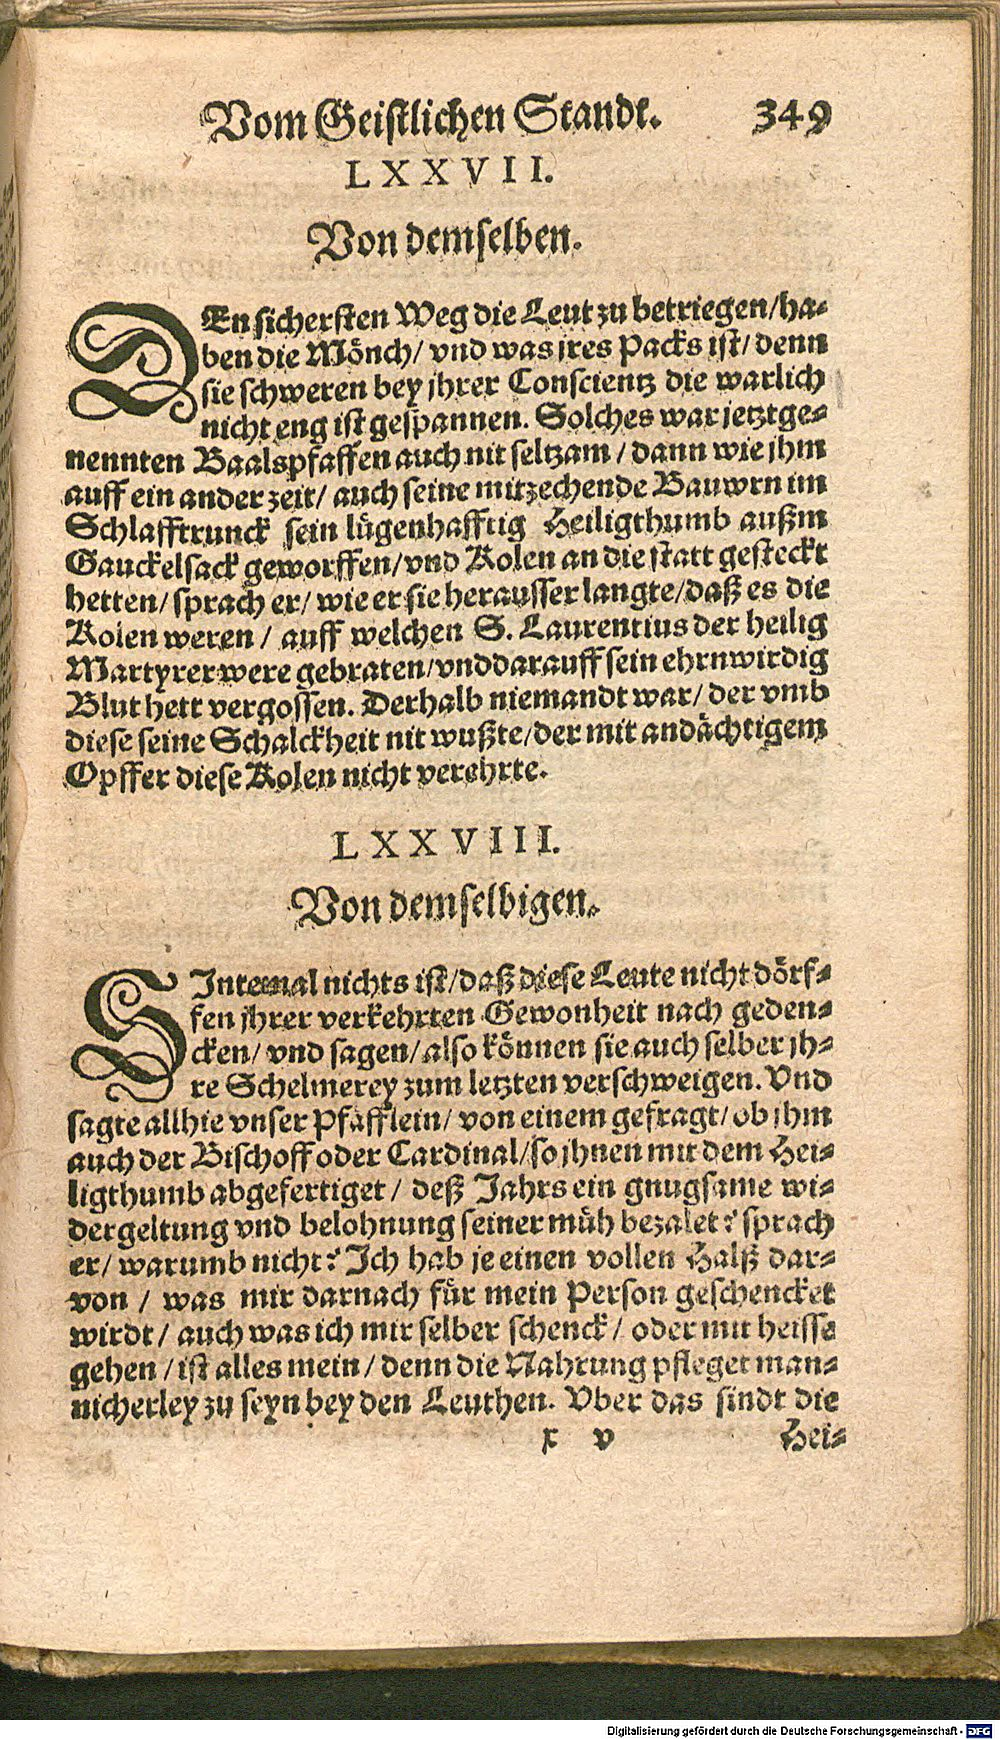 Vom Geistlichen Standt. 349
LXXVII.
Von demselben.
DEn sichersten Weg die Leut zu betriegen/ha-
ben die Mönch/ vnd was jres Packs ist/ denn
sie schweren bey jhrer Conscientz die warlich
nicht eng ist gespannen. Solches war jetztge-
nennten Baalspfaffen auch nit seltzam / dann wie jhm
auff ein ander zeit/ auch seine mitzechende Bauwrn im
Schlafftrunck sein lügenhafftig Heiligthumb außm
Gauckelsack geworffen/vnd Kolen an die statt gesteckt
hetten/ sprach er/ wie er sie herausser langte/daß es die
Kolen weren / auff welchen S. Laurentius der heilig
Martyrer were gebraten/vnd darauff sein ehrnwirdig
Blut hett vergossen. Derhalb niemandt war/ der vmb
diese seine Schalckheit nit wußte/der mit andächtigem
Opffer diese Kolen nicht verehrte.
LXXVIII.
Von demselbigen.
SIntemal nichts ist/daß diese Leute nicht dörf-
fen jhrer verkehrten Gewonheit nach geden-
cken/ vnd sagen/also können sie auch selber jh-
re Schelmerey zum letzten verschweigen. Vnd
sagte allhie vnser Pfäfflein/ von einem gefragt/ ob jhm
auch der Bischoff oder Cardinal/so jhnen mit dem Hei-
ligthumb abgefertiget / deß Jahrs ein gnugsame wi-
dergeltung vnd belohnung seiner müh bezalet? sprach
er/ warumb nicht? Ich hab je einen vollen Halß dar-
von / was mir darnach für mein Person geschencket
wirdt / auch was ich mir selber schenck / oder mit heisse
gehen / ist alles mein / denn die Nahrung pfleget man-
nicherley zu seyn bey den Leuthen. Vber das sindt die
x v Hei-
Digitalisierung gefördert durch die Deutsche Forschungsgemeinschaft - DFG